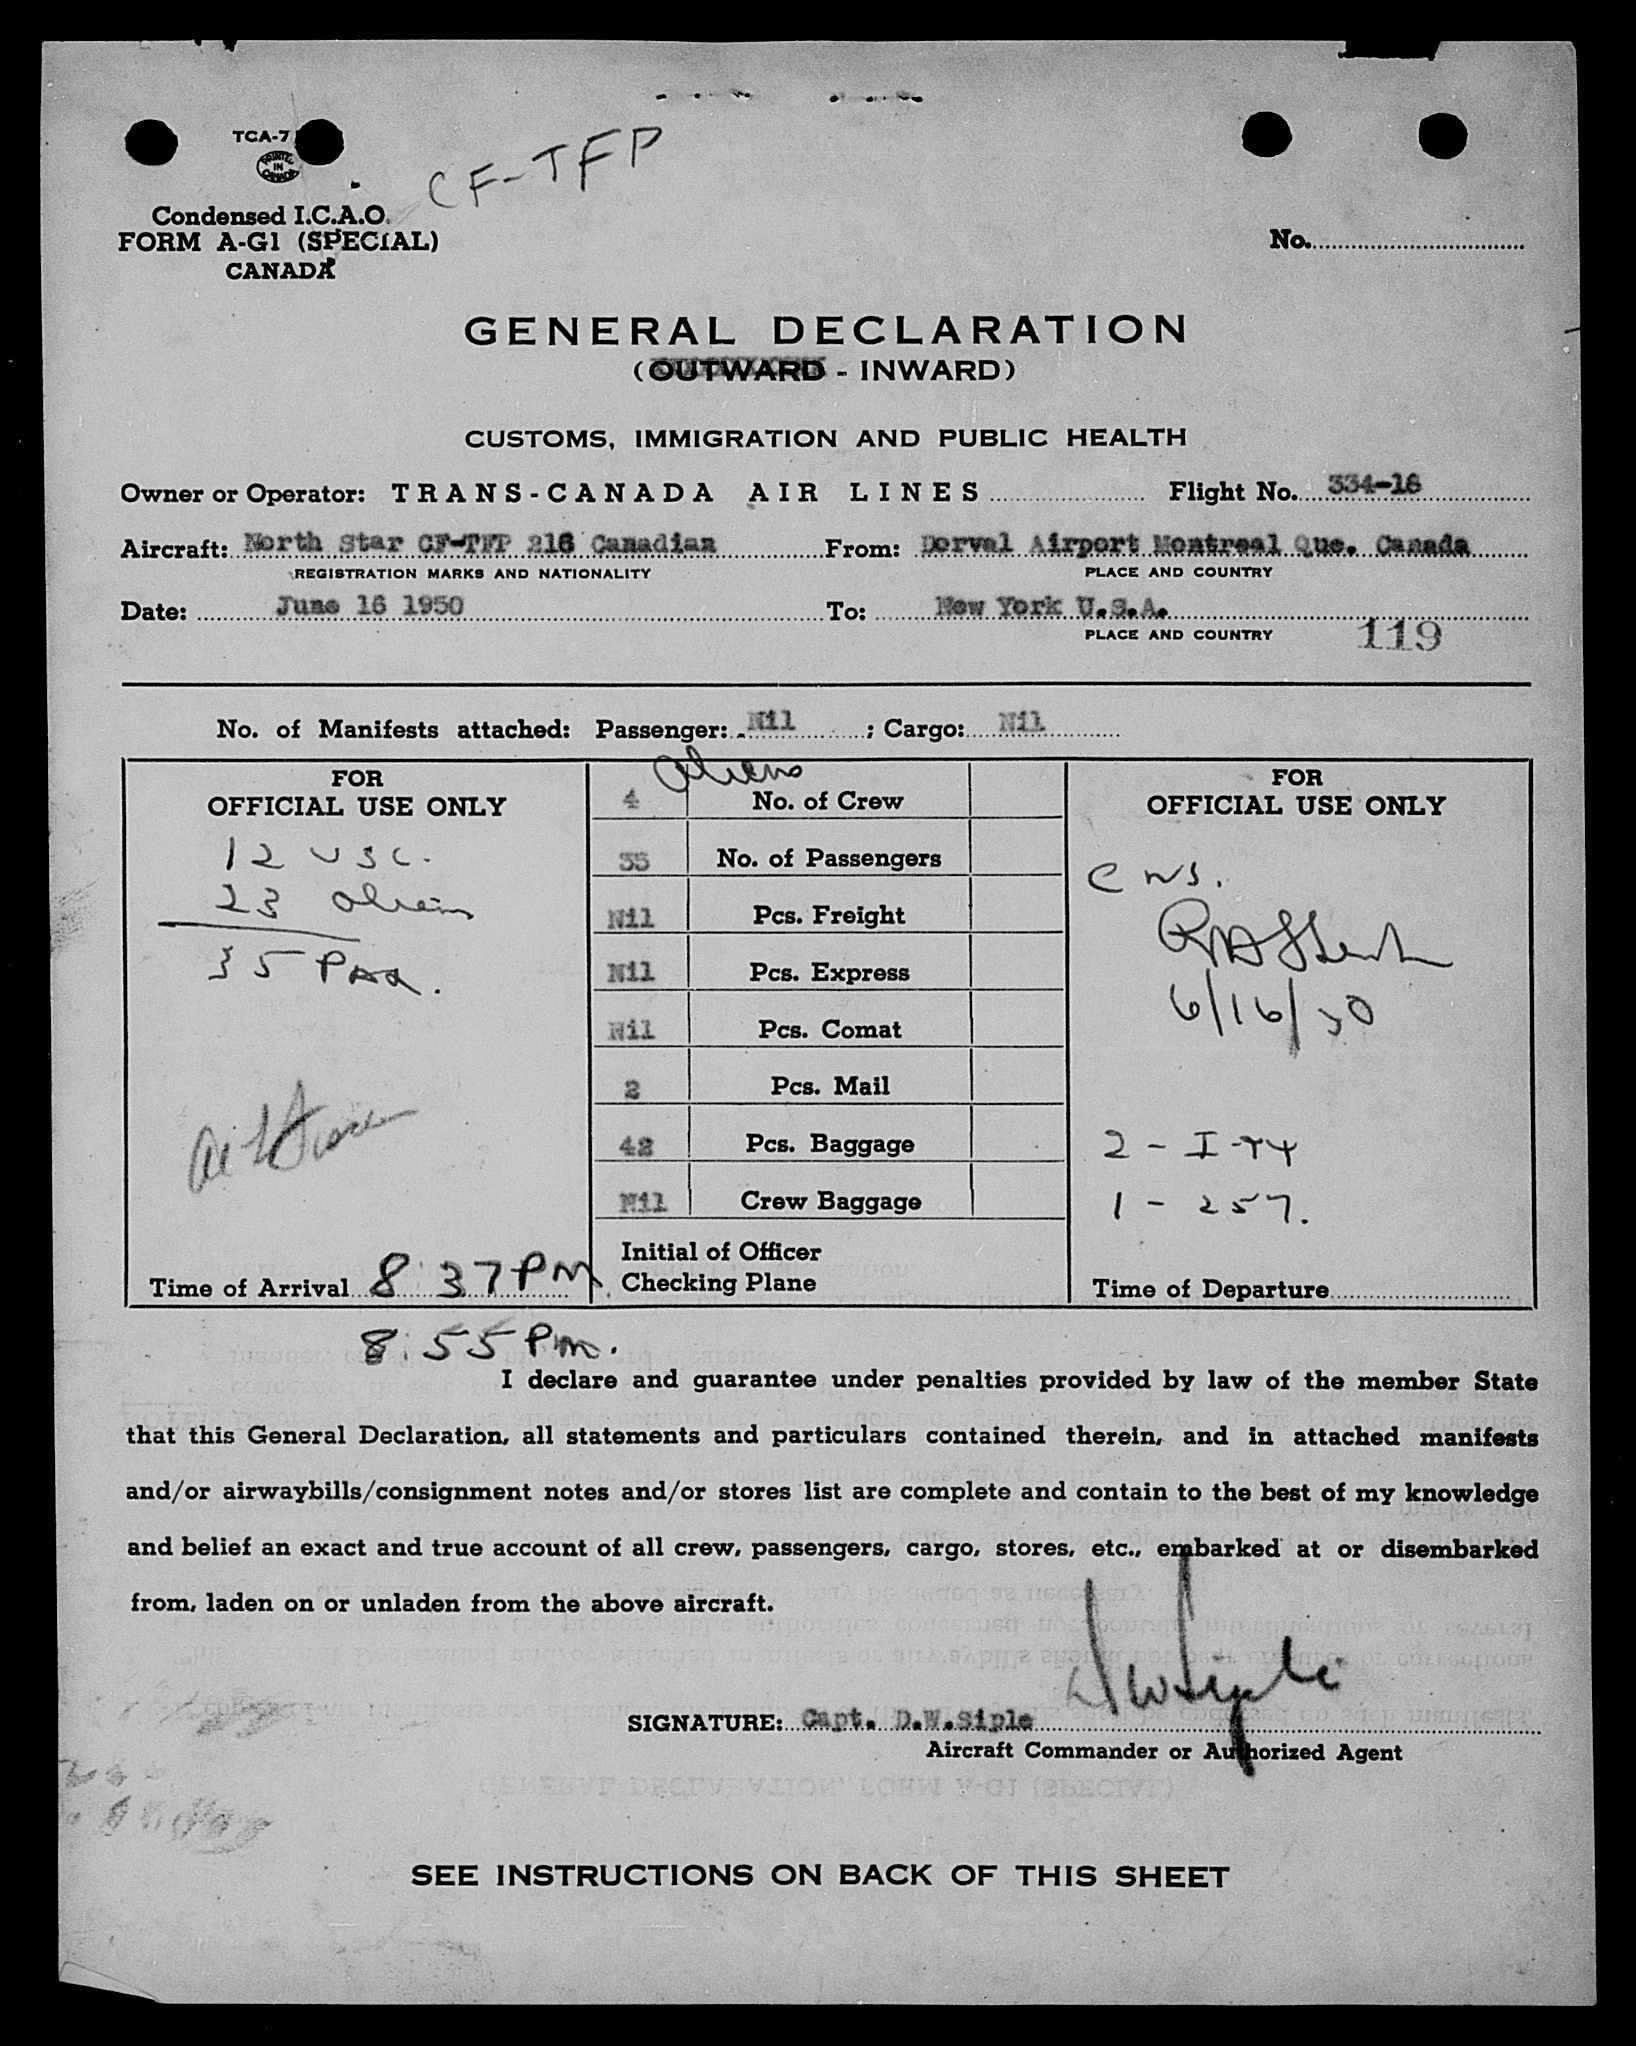 TCA-7
PRINTED IN CANADA
CF-TFP
Condensed I.C.A.O.
FORM A-G1 (SPECIAL)
CANADA
No.
GENERAL DECLARATION
(OUTWARD - INWARD)
CUSTOMS, IMMIGRATION AND PUBLIC HEALTH
Owner or Operator: TRANS-CANADA AIR LINES Flight No. 334-16
Aircraft: North Star CF-TFP 216 Canadian From: Dorval Airport Montreal Que. Canada
REGISTRATION MARKS AND NATIONALITY PLACE AND COUNTRY
Date: June 16 1950 To: New York U.S.A.
PLACE AND COUNTRY 119
No. of Manifests attached: Passenger: Nil ; Cargo: Nil
FOR
OFFICIAL USE ONLY
12 USC.
23 aliens
35 Pax.
Time of Arrival 8:37 PM
8:55 Pm.
aliens
4 No. of Crew
35 No. of Passengers
Nil Pcs. Freight
Nil Pcs. Express
Nil Pcs. Comat
2 Pcs. Mail
42 Pcs. Baggage
Nil Crew Baggage
Initial of Officer
Checking Plane
FOR
OFFICIAL USE ONLY
6/16/50
2 - I-94
1 - 257.
Time of Departure
I declare and guarantee under penalties provided by law of the member State
that this General Declaration, all statements and particulars contained therein, and in attached manifests
and/or airwaybills/consignment notes and/or stores list are complete and contain to the best of my knowledge
and belief an exact and true account of all crew, passengers, cargo, stores, etc., embarked at or disembarked
from, laden on or unladen from the above aircraft.
DWSiple
SIGNATURE: Capt. D.W.Siple
Aircraft Commander or Authorized Agent
SEE INSTRUCTIONS ON BACK OF THIS SHEET